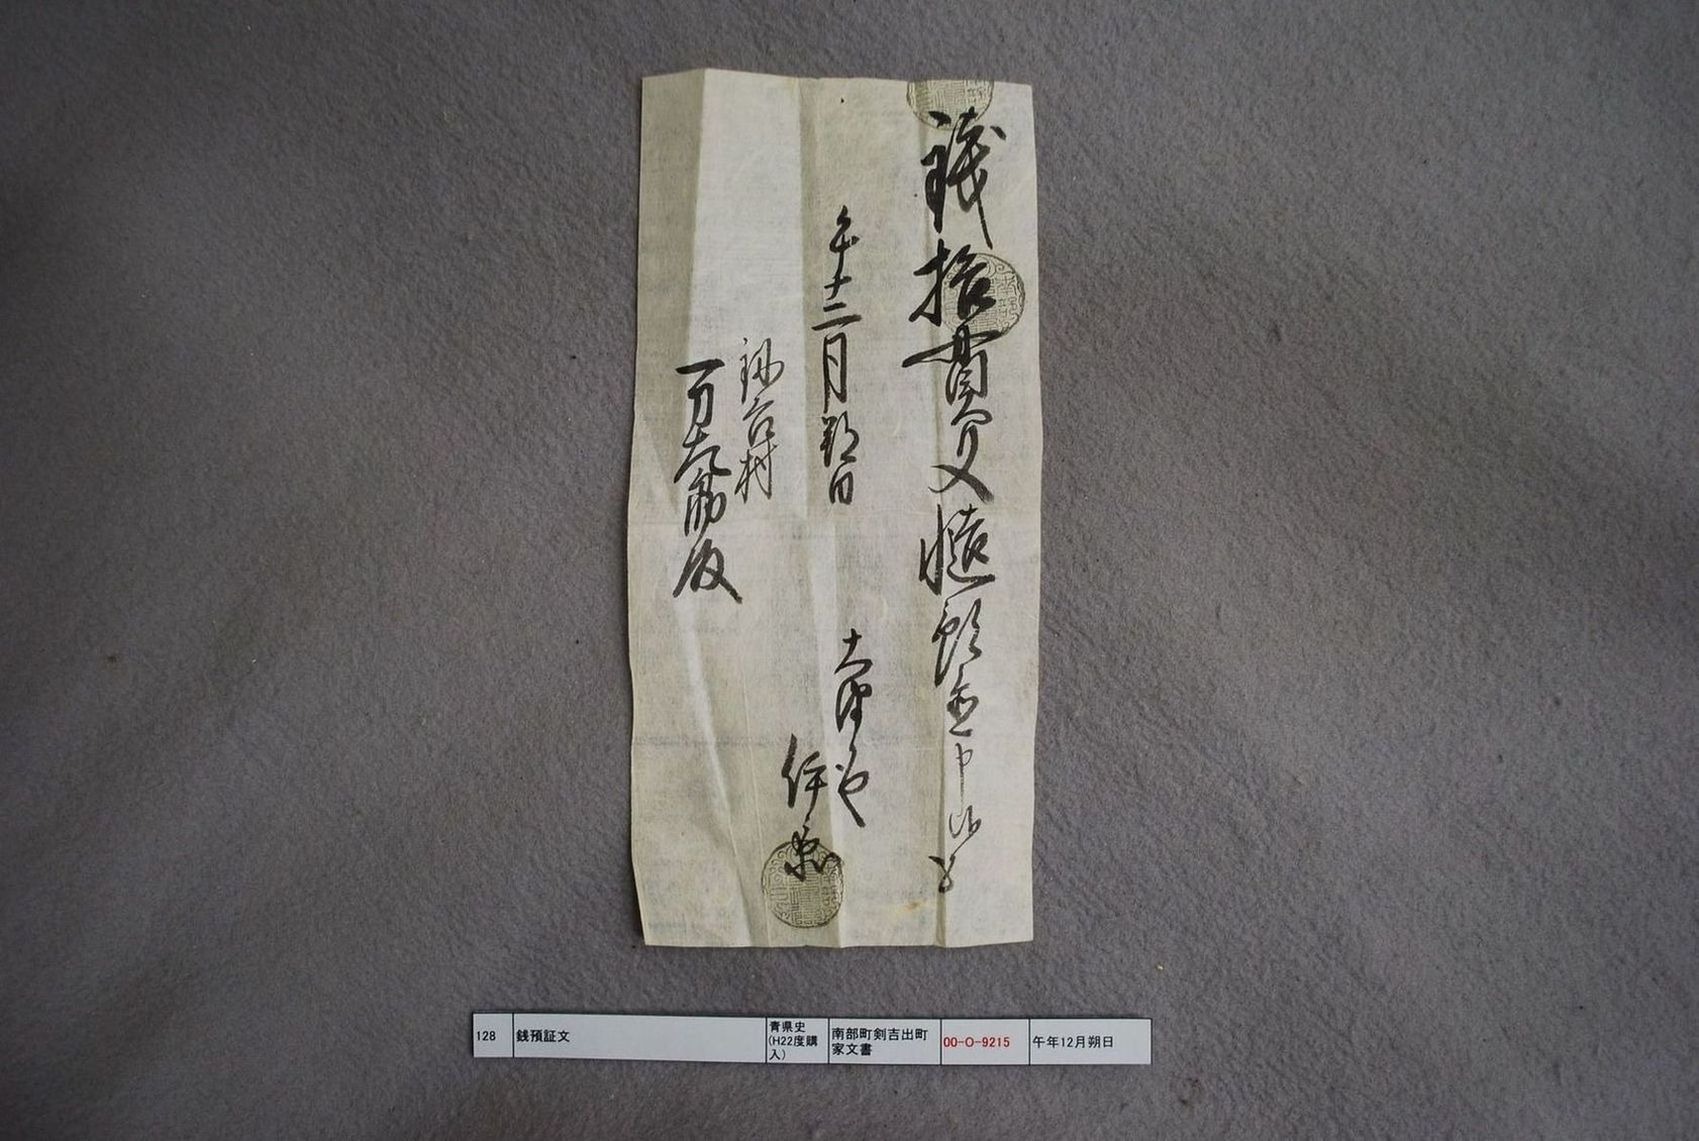 銭拾貫文慥預置申候以上
午十二月朔日
大津や
伊
村
万九郎殿
128
銭預証文
青県史
(H22度購
入)
南部町剣吉出町
家文書
00-O-9215
午年12月朔日